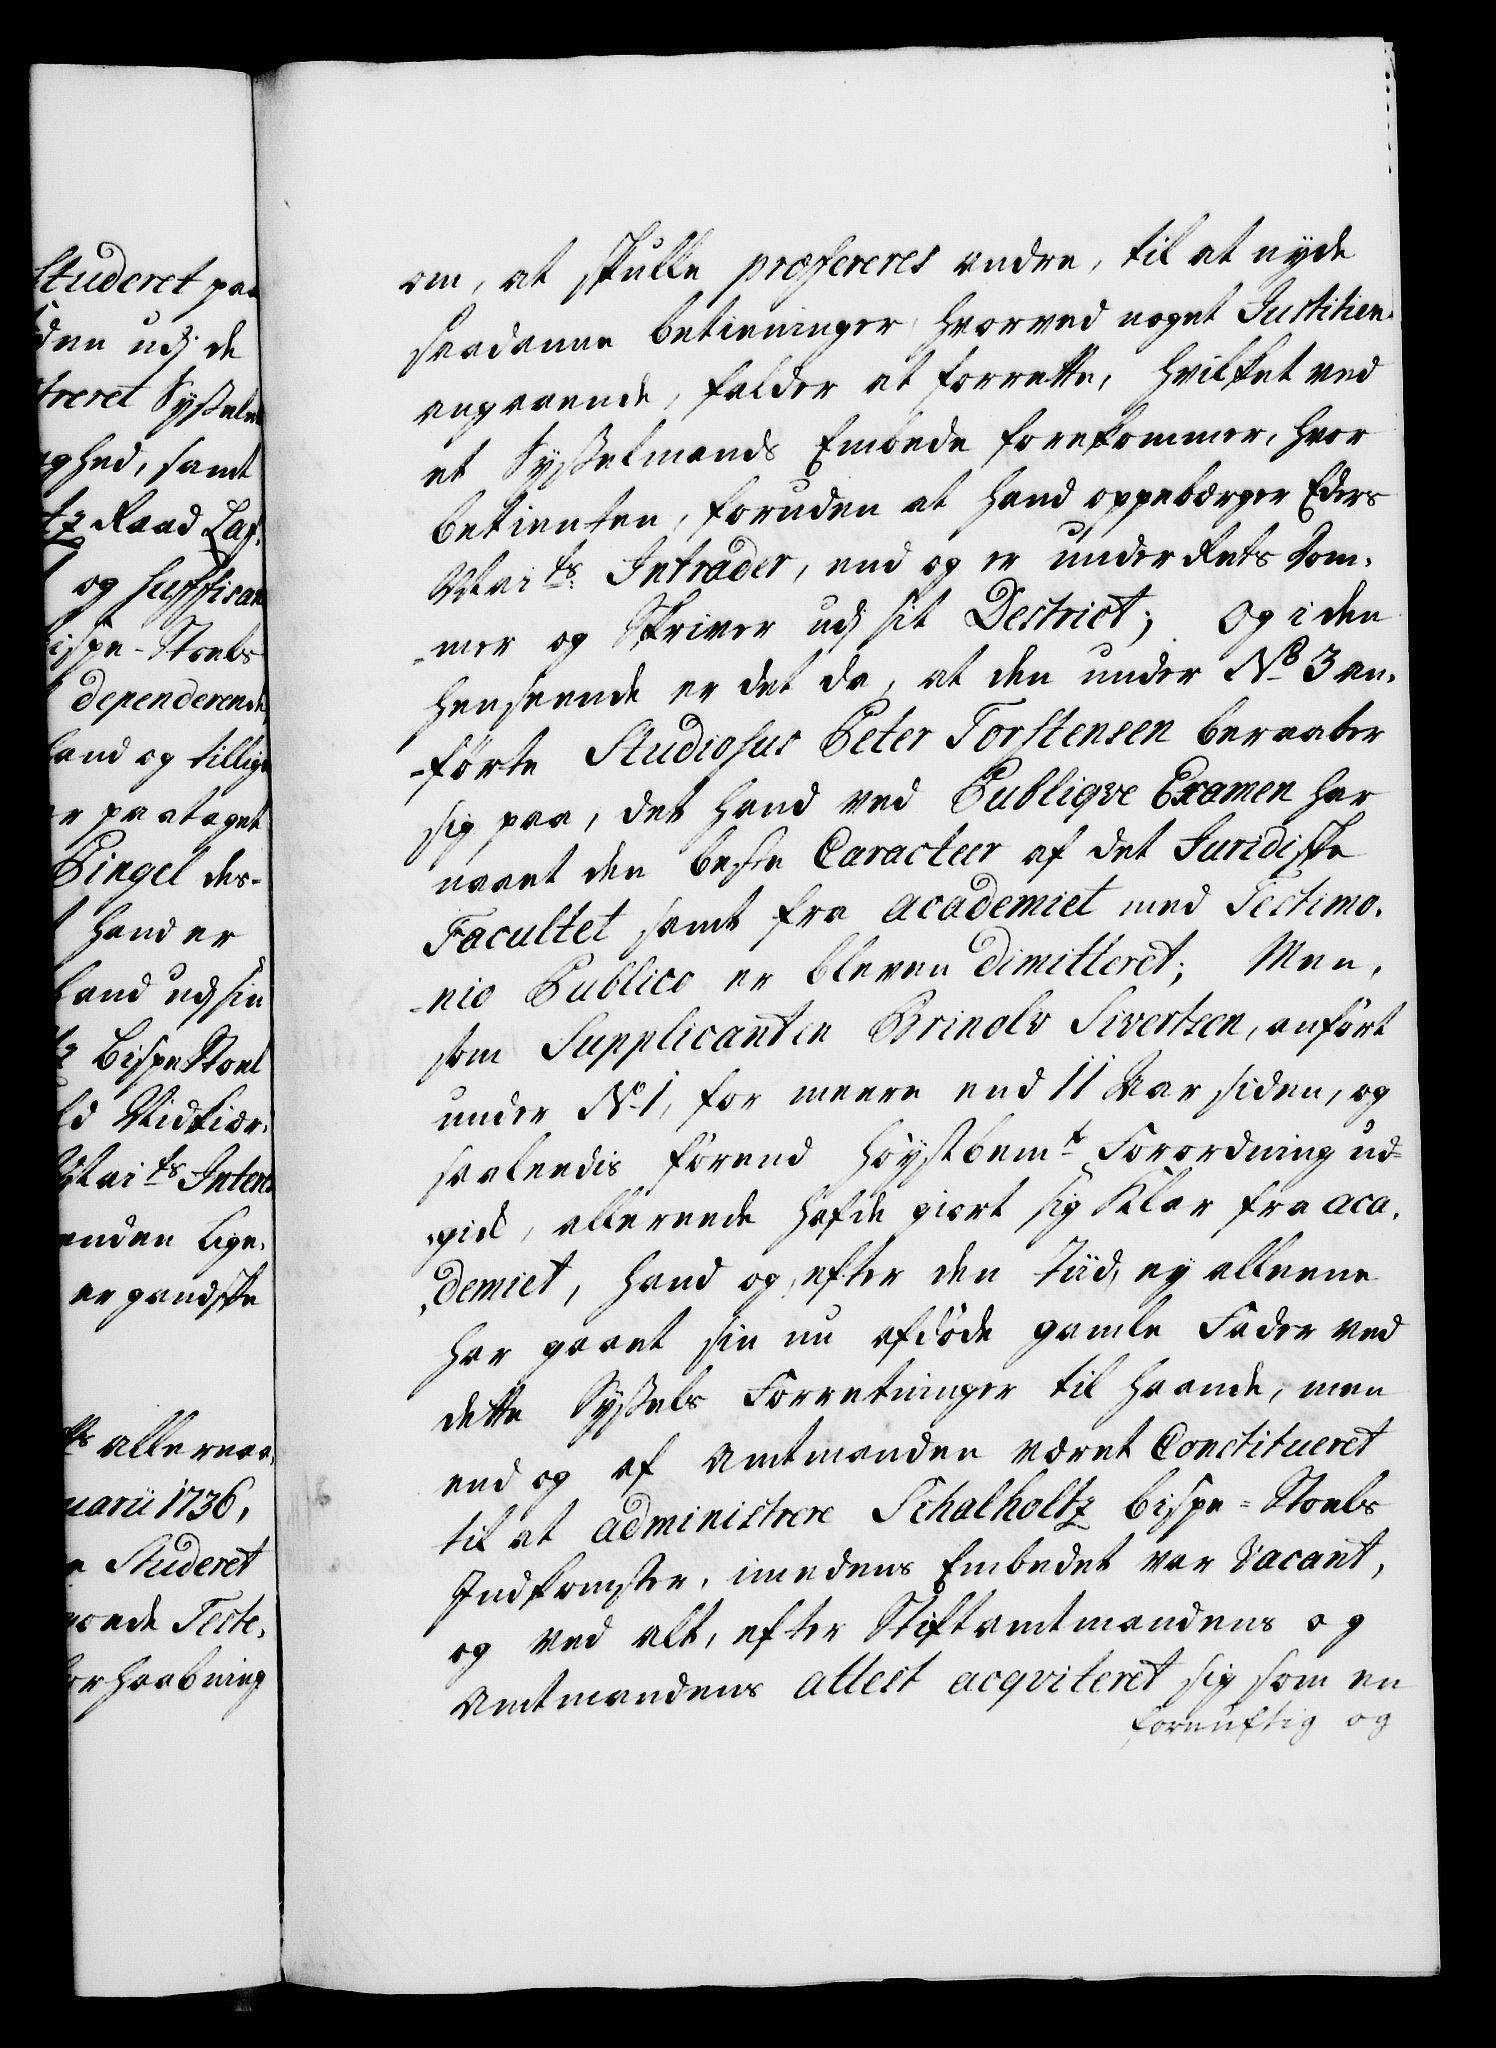 Studeret paa
den udj de
treret Sysselet
ghed, samt
tz Raad Laf,
og suffisan
ispe-Stoels
dependerende
land og tillige
er paataget
Bingel des-
hand er
hand udj sin
tz Bispe Stoel
ld Vidkier,
Maits Inter
enden lige,
er gandske
allernaa,
uarii 1736,
Studeret
ærede Teste,
forhaabning
om, at skulle præfereres andre, til at nyde
saadanne betieninger, hvorved noget Justitien
angaaende, falder at forrette, hvilket ved
et Sysselmands Embede forekommer, hvor
betienten, foruden at hand oppebærger Eders
Maits Intrader, end og er under Rets Dom,
-mer og Skriver udj sit Destrict; Og i den
henseende er det da, at den under No 3 an,
-førte Studiosus Peter Torstensen beraaber
sig paa, det hand ved Publiqve Examen har
naaet den beste Caracteer af det Juridiske
Facultet samt fra academiet med Testimo,
-nio Publico er bleven dimitteret; Men,
som Supplicanten Brinolv Sivertsen, anført
under No 1, for meere end 11 Aar siden, og
saaleedis førend Høystbemte Forordning ud-
,gik, allereede hafde giort sig Klar fra aca,
,demiet, hand og, efter den Tiid, ey alleene
har gaaet sin nu afdøde gamle Fader ved
dette Syssels Forretninger til haande, men
end og af Amtmanden været Constitueret
til at administrere Schalholtz bispe-Stoels
Indkomster, imedens Embedet var Vacant,
og ved alt, efter Stiftamtmandens og
Amtmandens attest acqviteret sig som en
fornuftig og